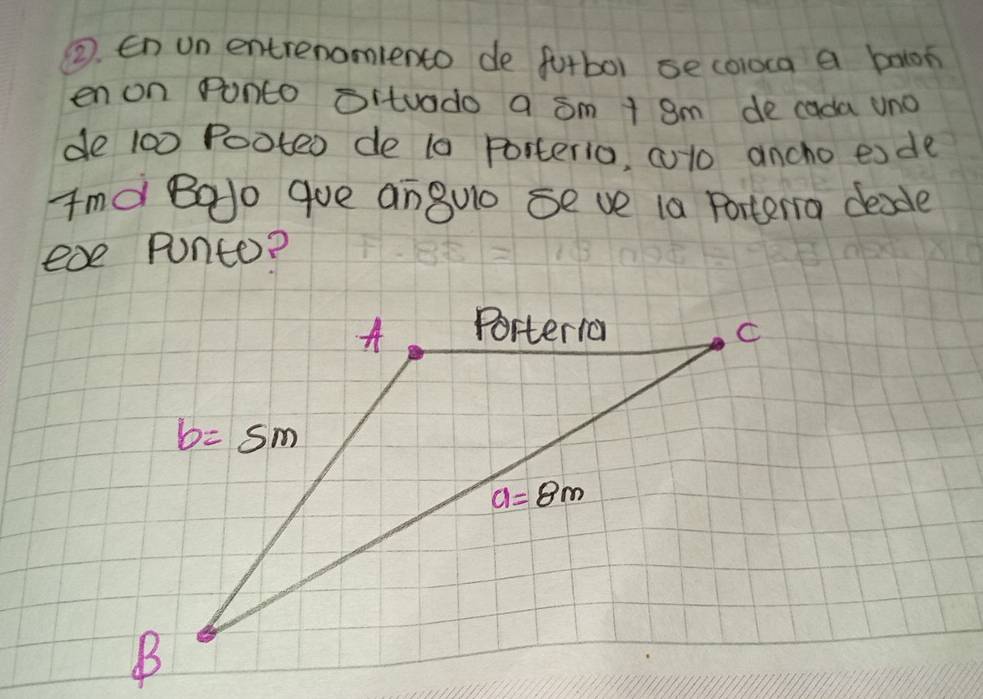 ②. En un entrenamiento de futbol se coloca el balon
en un Punto Situado a 5m y 8m de cada uno
de los Postes de la Porteria, cuyo ancho es de
7m d Bajo que angulo se ve la Porteria desde
ese Punto?
A Porteria C
b= 5m
a= 8m
B